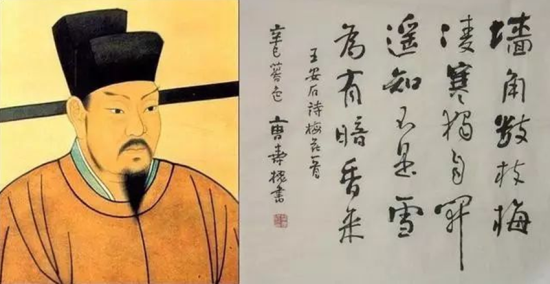 墙角数枝梅
凌寒独自开
遥知不是雪
为有暗香来
王安石诗梅花一首
辛巳 书